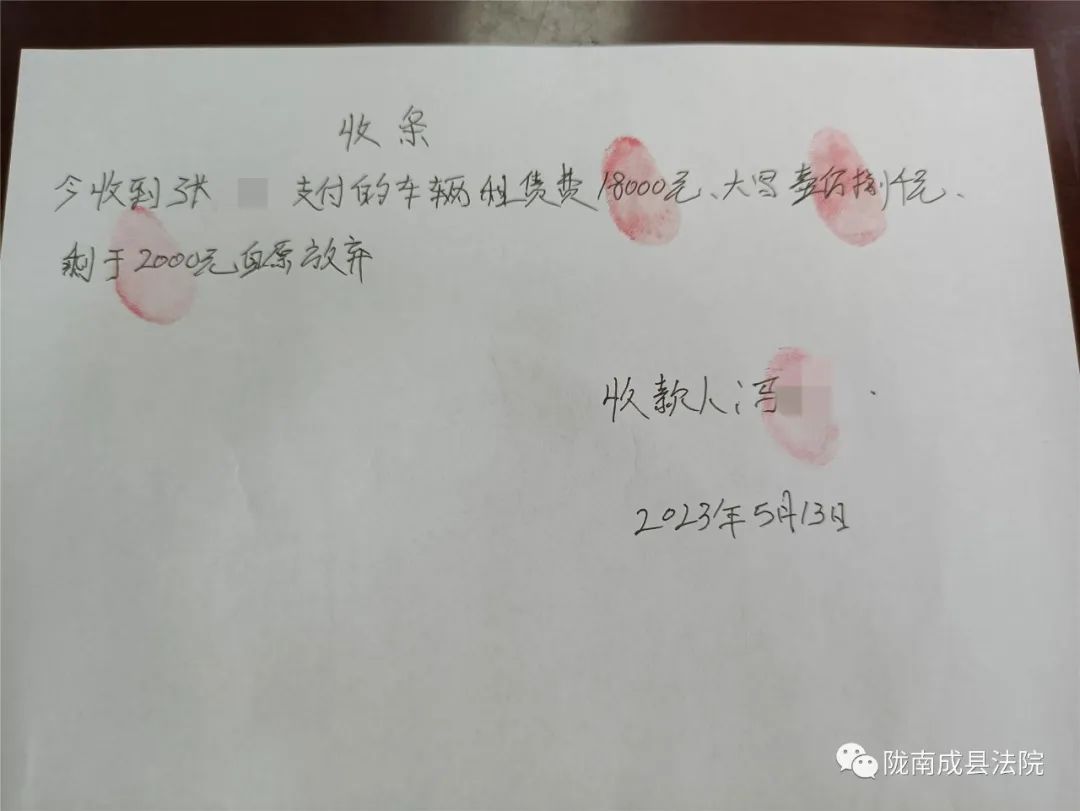 收条
今收到张 支付的车辆租赁费18000元、大写壹 捌仟元、
剩于2000元自愿放弃
收款人:冯
2023年5月13日
陇南成县法院